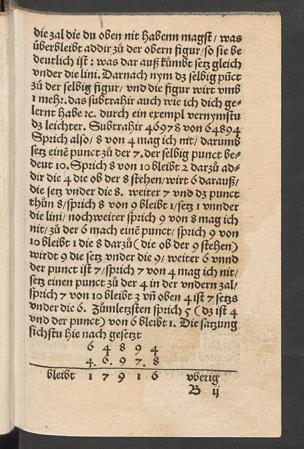 die zal die du oben nit habenn magst/ was
überbleibt addir zů der obern figur/so sie be
deutlich ist: was dar auß kůmbt setz gleich
vnder die lini. Darnach nym dz selbig pũct
zů der selbig figur/ vnd die figur wirt vmb
1 mehr. das subtrahir auch wie ich dich ge-
lernt habe ꝛc. durch ein exempl vernymstu
dz leichter. Subtrahir 46978 von 64894
Sprich also/ 8 von 4 mag ich nit/ darumb
setz einẽ punct zů der 7. der selbig punct be-
deut 10. Sprich 8 von 10 bleibt 2 darzů ad-
dir die 4 die ob der 8 stehen/wirt 6 darauß/
die setz vnder die 8. weiter 7 vnd dz punct
thůn 8/sprich 8 von 9 bleibt 1/setz 1 vnnder
die lini/ noch weiter sprich 9 von 8 mag ich
nit/ zů der 6 mach einẽ punct/ sprich 9 von
10 bleibt 1 die 8 darzů ( die ob der 9 stehen)
wirdt 9 die setz vnder die 9/ weiter 6 vnnd
der punct ist 7/sprich 7 von 4 mag ich nit/
setz einen punct zů der 4 in der vndern zal/
sprich 7 von 10 bleibt 3 vñ oben 4 ist 7 setzs
vnder die 6. Zůmletzsten sprich 5 ( dz ist 4
vnd der punct) von 6 bleibt 1. Die satzung
sichstu hie nach gesetzt
6 4 8 9 4
4. 6. 9 7. 8
bleibt 1 7 9 1 6 vberig
B ij